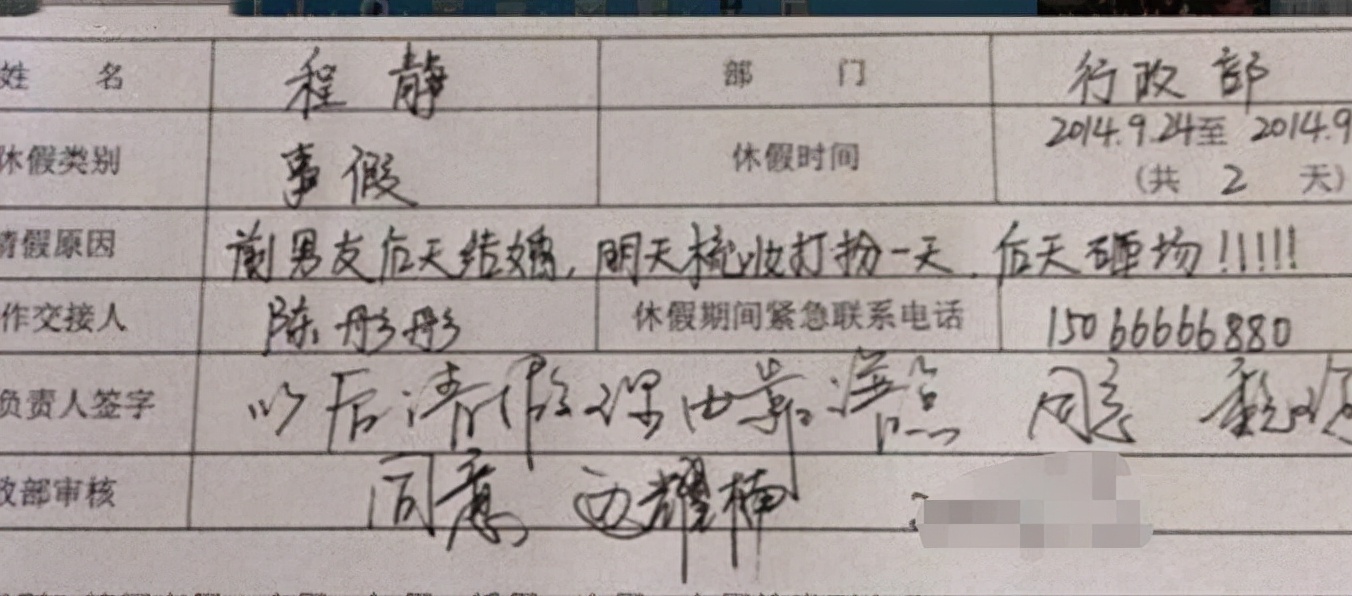 姓 名 程静 部 门 行政部
休假类别 事假 休假时间 2014.9.24至 2014.9
(共 2 天)
请假原因 前男友后天结婚,明天梳妆打扮一天,后天砸场!!!!!
作交接人 陈彤彤 休假期间紧急联系电话 15066666880
负责人签字 以后请假理由靠谱点 同意
政部审核 同意 耀楠